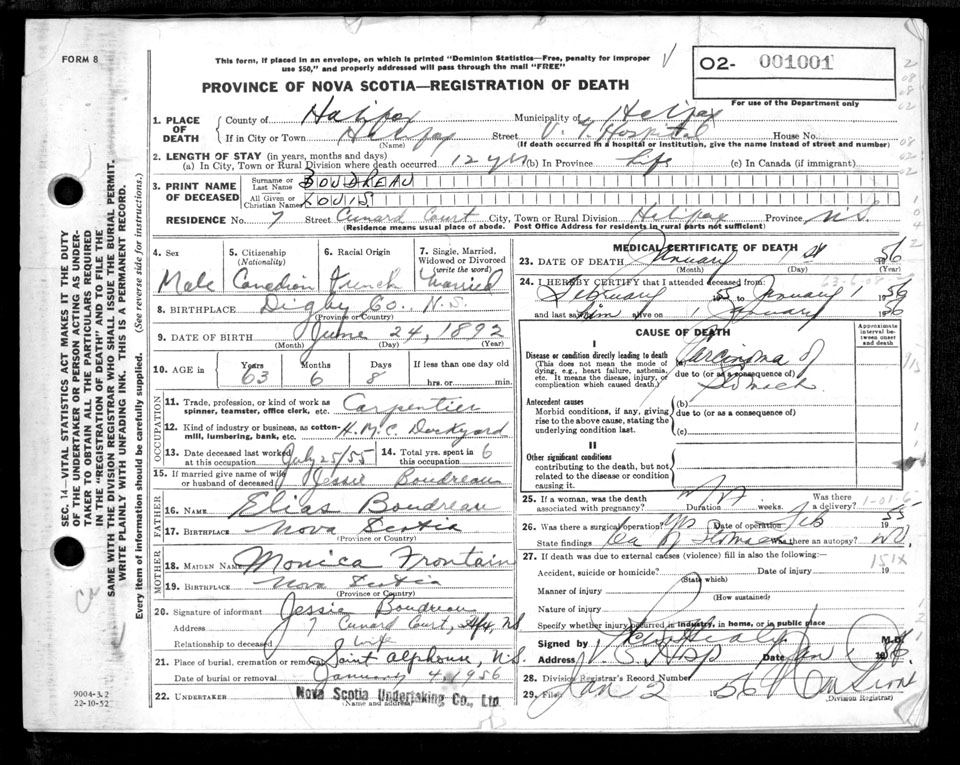 FORM 8
This form, if placed in an envelope, on which is printed "Dominion Statistics—Free, penalty for improper
use $50," and properly addressed will pass through the mail "FREE"
02- 001001
PROVINCE OF NOVA SCOTIA—REGISTRATION OF DEATH
For use of the Department only
1. PLACE OF DEATH
County of Halifax Municipality of Halifax
If in City or Town Halifax Street V. G. Hospital House No.
(Name) (If death occurred in a hospital or institution, give the name instead of street and number)
2. LENGTH OF STAY (in years, months and days)
(a) In City, Town or Rural Division where death occurred 12 yrs (b) In Province Life (c) In Canada (if immigrant)
3. PRINT NAME OF DECEASED
Surname or Last Name BOUDREAU
All Given or Christian Names LOUIS
RESIDENCE No. 7 Street Cunard Court City, Town or Rural Division Halifax Province N.S.
(Residence means usual place of abode. Post Office Address for residents in rural parts not sufficient)
4. Sex
Male
5. Citizenship
(Nationality)
Canadian
6. Racial Origin
French
7. Single, Married,
Widowed or Divorced
(write the word)
Married
8. BIRTHPLACE Digby Co. N.S.
(Province or Country)
9. DATE OF BIRTH June 24, 1892
(Month) (Day) (Year)
10. AGE in Years Months Days If less than one day old
63 6 8 hrs. or min.
OCCUPATION
11. Trade, profession, or kind of work as
spinner, teamster, office clerk, etc. Carpentier
12. Kind of industry or business, as cotton-
mill, lumbering, bank, etc. H.M.C. Dockyard
13. Date deceased last worked
at this occupation July 25/55
14. Total yrs. spent in
this occupation 6
15. If married give name of wife
or husband of deceased Jessie Boudreau
FATHER
16. NAME Elias Boudreau
17. BIRTHPLACE Nova Scotia
(Province or Country)
MOTHER
18. MAIDEN NAME Monica Frontain
19. BIRTHPLACE Nova Scotia
(Province or Country)
20. Signature of informant Jessie Boudreau
Address 7 Cunard Court, Hfx, NS
Relationship to deceased Wife
21. Place of burial, cremation or removal Saint Alphonse, N.S.
Date of burial or removal January 4, 1956
22. UNDERTAKER Nova Scotia Undertaking Co., Ltd.
(Name and address)
MEDICAL CERTIFICATE OF DEATH
23. DATE OF DEATH January 1 1956
(Month) (Day)
24. I HEREBY CERTIFY that I attended deceased from:
February to January 1 1956
and last saw him alive on 1 January 1956
CAUSE OF DEATH
Approximate
interval
between onset
and death
I
Disease or condition directly leading to death
(This does not mean the mode of
dying, e.g., heart failure, asthenia,
etc. It means the disease, injury, or
complication which caused death.)
Carcinoma of
due to (or as a consequence of)
Stomach
Antecedent causes
Morbid conditions, if any, giving
rise to the above cause, stating the
underlying condition last.
(b)
due to (or as a consequence of)
(c)
II
Other significant conditions
contributing to the death, but not
related to the disease or condition
causing it.
25. If a woman, was the death
associated with pregnancy? Duration Was there
a delivery?
26. Was there a surgical operation? Yes Date of operation Feb 1955
State findings Ca of Stomach Was there an autopsy? no.
27. If death was due to external causes (violence) fill in also the following:—
Accident, suicide or homicide? Date of injury 19
(State which)
Manner of injury
(How sustained)
Nature of injury
Specify whether injury occurred in industry, in home, or in public place
Signed by M.D.
Address V. G. Hosp Date Jan 1
28. Division Registrar's Record Number
29. Filed Jan 2 1956
(Division Registrar)
151X
9004-3.2
22-10-52
SEC. 14—VITAL STATISTICS ACT MAKES IT THE DUTY
OF THE UNDERTAKER OR PERSON ACTING AS UNDER-
TAKER TO OBTAIN ALL THE PARTICULARS REQUIRED
IN THE "REGISTRATION OF DEATH" AND TO FILE THE
SAME WITH THE DIVISION REGISTRAR WHO SHALL ISSUE THE BURIAL PERMIT.
WRITE PLAINLY WITH UNFADING INK. THIS IS A PERMANENT RECORD.
Every item of information should be carefully supplied. (See reverse side for instructions.)